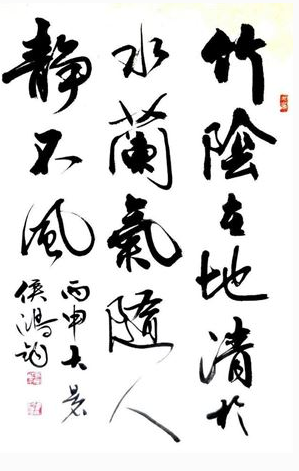 竹陰在地清於
水蘭氣隨人
靜不風
丙申大暑
侯鴻